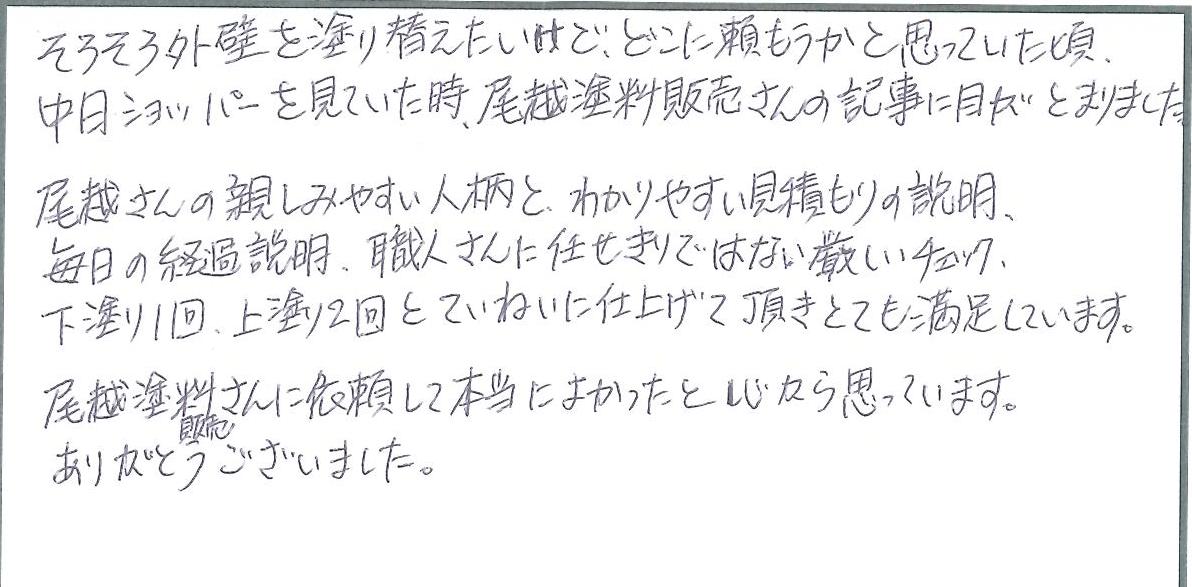 そろそろ外壁を塗り替えたいけど、どこに頼もうかと思っていた頃、
中日ショッパーを見ていた時、尾越塗料販売さんの記事に目がとまりました。
尾越さんの親しみやすい人柄と、わかりやすい見積もりの説明、
毎日の経過説明、職人さんに任せきりではない厳しいチェック、
下塗り1回、上塗り2回とていねいに仕上げて頂きとても満足しています。
尾越塗料さんに依頼して本当によかったと心から思っています。
販売
ありがとうございました。